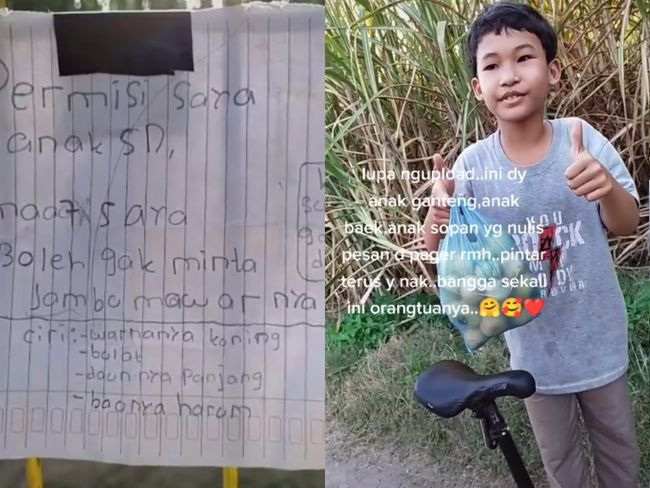 Permisi saya
anak SD,
maaf saya
Boleh gak minta
Jambu mawar nya
ciri:-warnanya koning
-bolat
-daon nya Panjang
-baonya harum
lupa ngupload..ini dy
anak ganteng,anak
baek,anak sopan yg nulis
pesan d pager rmh..pintar
terus y nak..bangga sekali
ini orangtuanya..🤗🥰❤️
YOU